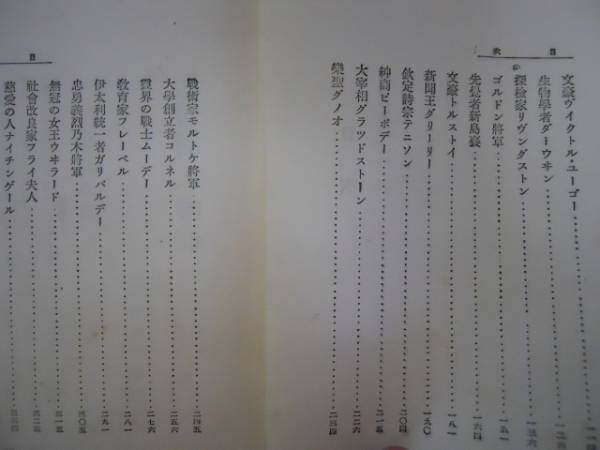 目次
文豪ヴイクトル・ユーゴー
生物學者ダーウヰン
探檢家リヴングストン
ゴルドン將軍 一五一
先覺者新島襄 一六四
文豪トルストイ 一八一
新聞王グリーリー 一九〇
欽定詩宗テニソン 二〇四
紳商ピーボデー 二一五
大宰相グラツドストーン 二二六
樂聖グノオ 二三四
目
戰術家モルトケ將軍 二四五
大學創立者コルネル 二五六
靈界の戰士ムーデー 二七六
敎育家フレーベル 二八一
伊太利統一者ガリバルデー 二九一
忠勇義烈乃木將軍 三〇五
無冠の女王ウヰラード 三一五
社會改良家フライ夫人 三二五
慈愛の人ナイチンゲール